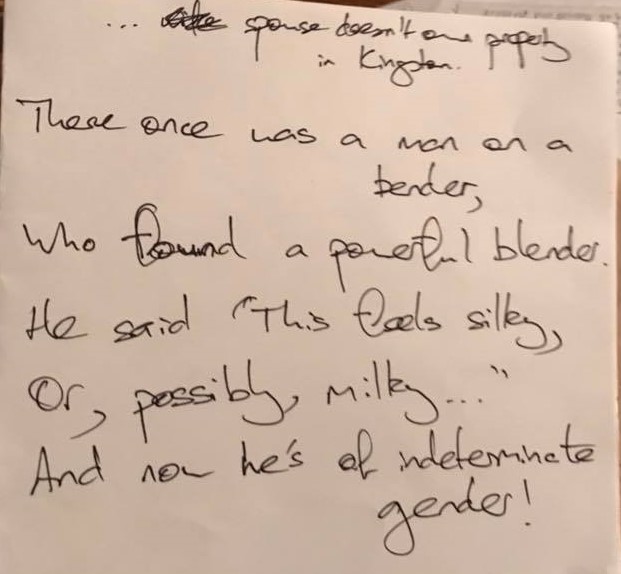 ... spouse doesn't own property
in Kingston.
There once was a man on a
bender,
Who found a powerful blender.
He said "This feels silky,
Or, possibly, milky..."
And now he's of indeterminate
gender!